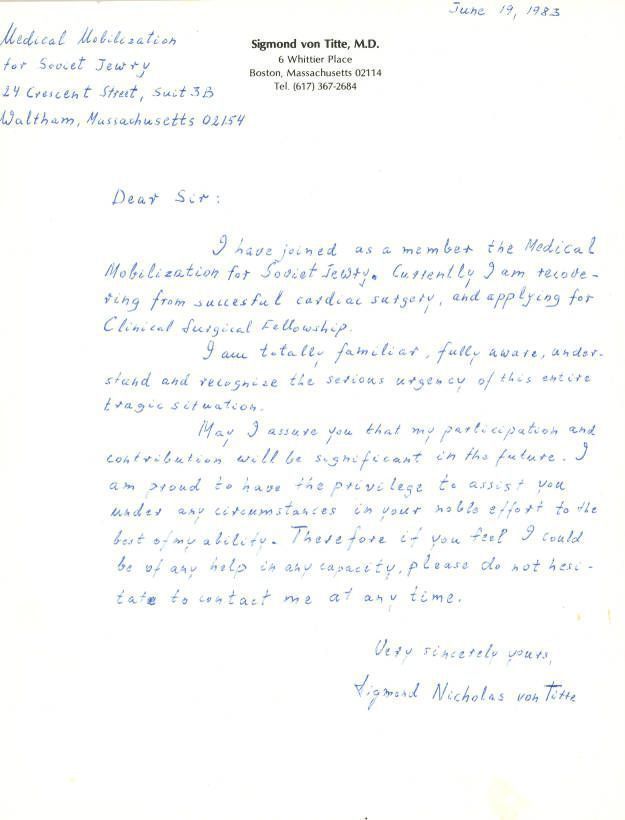 June 19, 1983
Medical Mobilization
for Soviet Jewry
24 Crescent Street, Suit 3B
Waltham, Massachusetts 02154
Sigmond von Titte, M.D.
6 Whittier Place
Boston, Massachusetts 02114
Tel. (617) 367-2684
Dear Sir:
I have joined as a member the Medical
Mobilization for Soviet Jewry. Currently I am recove-
ring from succesful cardiac surgery, and applying for
Clinical Surgical Fellowship.
I am totally familiar, fully aware, under-
stand and recognize the serious urgency of this entire
tragic situation.
May I assure you that my participation and
contribution will be significant in the future. I
am proud to have the privilege to assist you
under any circumstances in your noble effort to the
best of my ability. Therefore if you feel I could
be of any help in any capacity, please do not hesi-
tate to contact me at any time.
Very sincerely yours,
Sigmond Nicholas von Titte